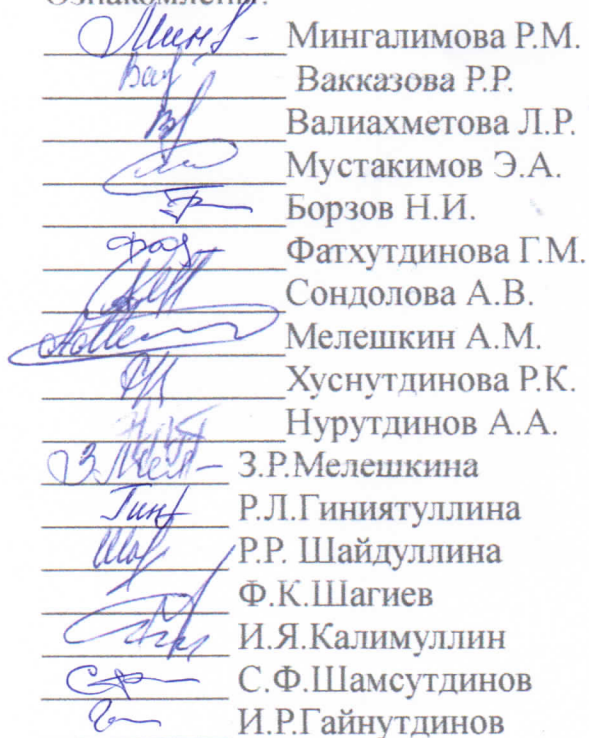 Ознакомлены:
Мингалимова Р.М.
Вакказова Р.Р.
Валиахметова Л.Р.
Мустакимов Э.А.
Борзов Н.И.
Фатхутдинова Г.М.
Сондолова А.В.
Мелешкин А.М.
Хуснутдинова Р.К.
Нурутдинов А.А.
З.Р.Мелешкина
Р.Л.Гиниятуллина
Р.Р. Шайдуллина
Ф.К.Шагиев
И.Я.Калимуллин
С.Ф.Шамсутдинов
И.Р.Гайнутдинов